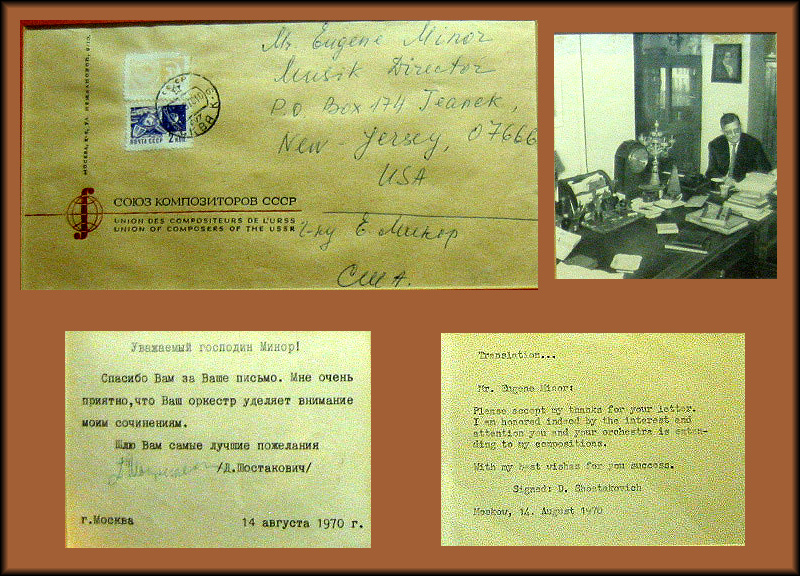 Mr. Eugene Minor
Musik Director
P.O Box 174 Teanek,
New-Jersey, 07666
USA
СОЮЗ КОМПОЗИТОРОВ СССР
UNION DES COMPOSITEURS DE L'URSS
UNION OF COMPOSERS OF THE USSR
г-ну Е. Минор
США.
ПОЧТА СССР
Уважаемый господин Минор!
Спасибо Вам за Ваше письмо. Мне очень
приятно,что Ваш оркестр уделяет внимание
моим сочинениям.
Шлю Вам самые лучшие пожелания
/Д.Шостакович/
г.Москва 14 августа 1970 г.
Translation...
Mr. Eugene Minor:
Please accept my thanks for your letter.
I am honored indeed by the interest and
attention you and your orchestra is exten-
ding to my compositions.
With my best wishes for you success.
Signed: D. Shostakovich
Moskow, 14. August 1970